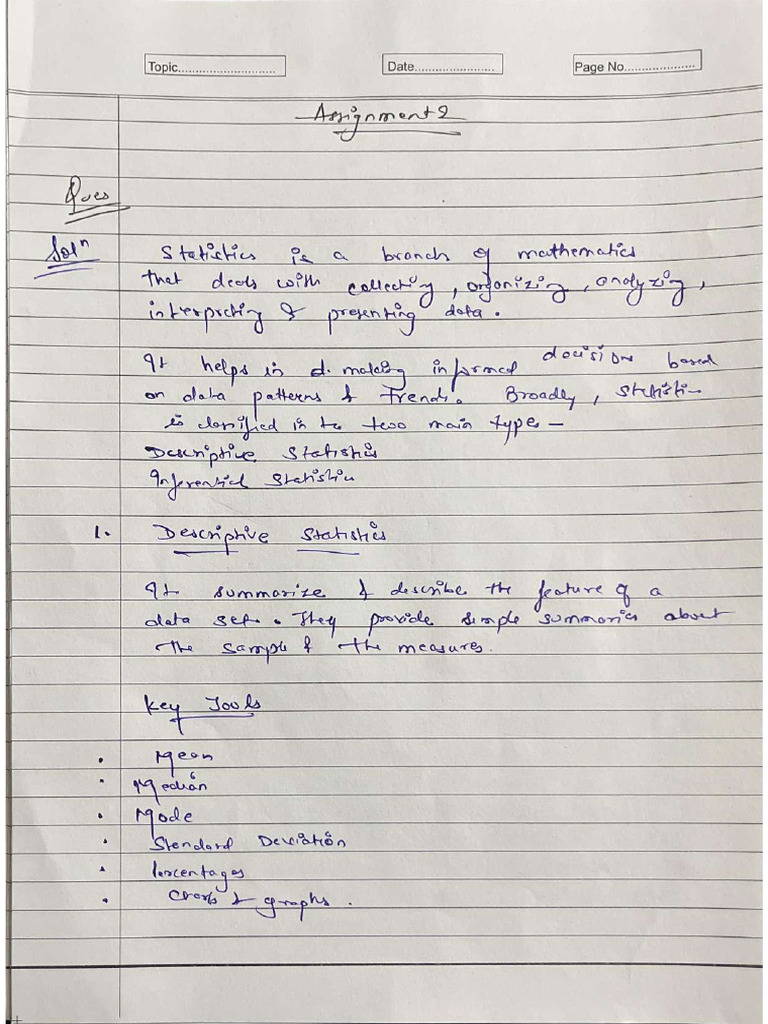 Topic............................ Date....................... Page No....................
Assignment 2
Ques
Solⁿ
Statistics is a branch of mathematics
that deals with collecting, organizing, analyzing,
interpreting & presenting data.
It helps in d. making informed decisions based
on data patterns & Trends. Broadly, Statisti-
is classified in to two main type -
Descriptive Statistics
Inferential Statistics
1. Descriptive Statistics
It summarize & describe the feature of a
data set. They provide simple summaries about
the sample & the measures.
Key Tools
• Mean
• Median
• Mode
• Standard Deviation
• Percentages
• & graphs.